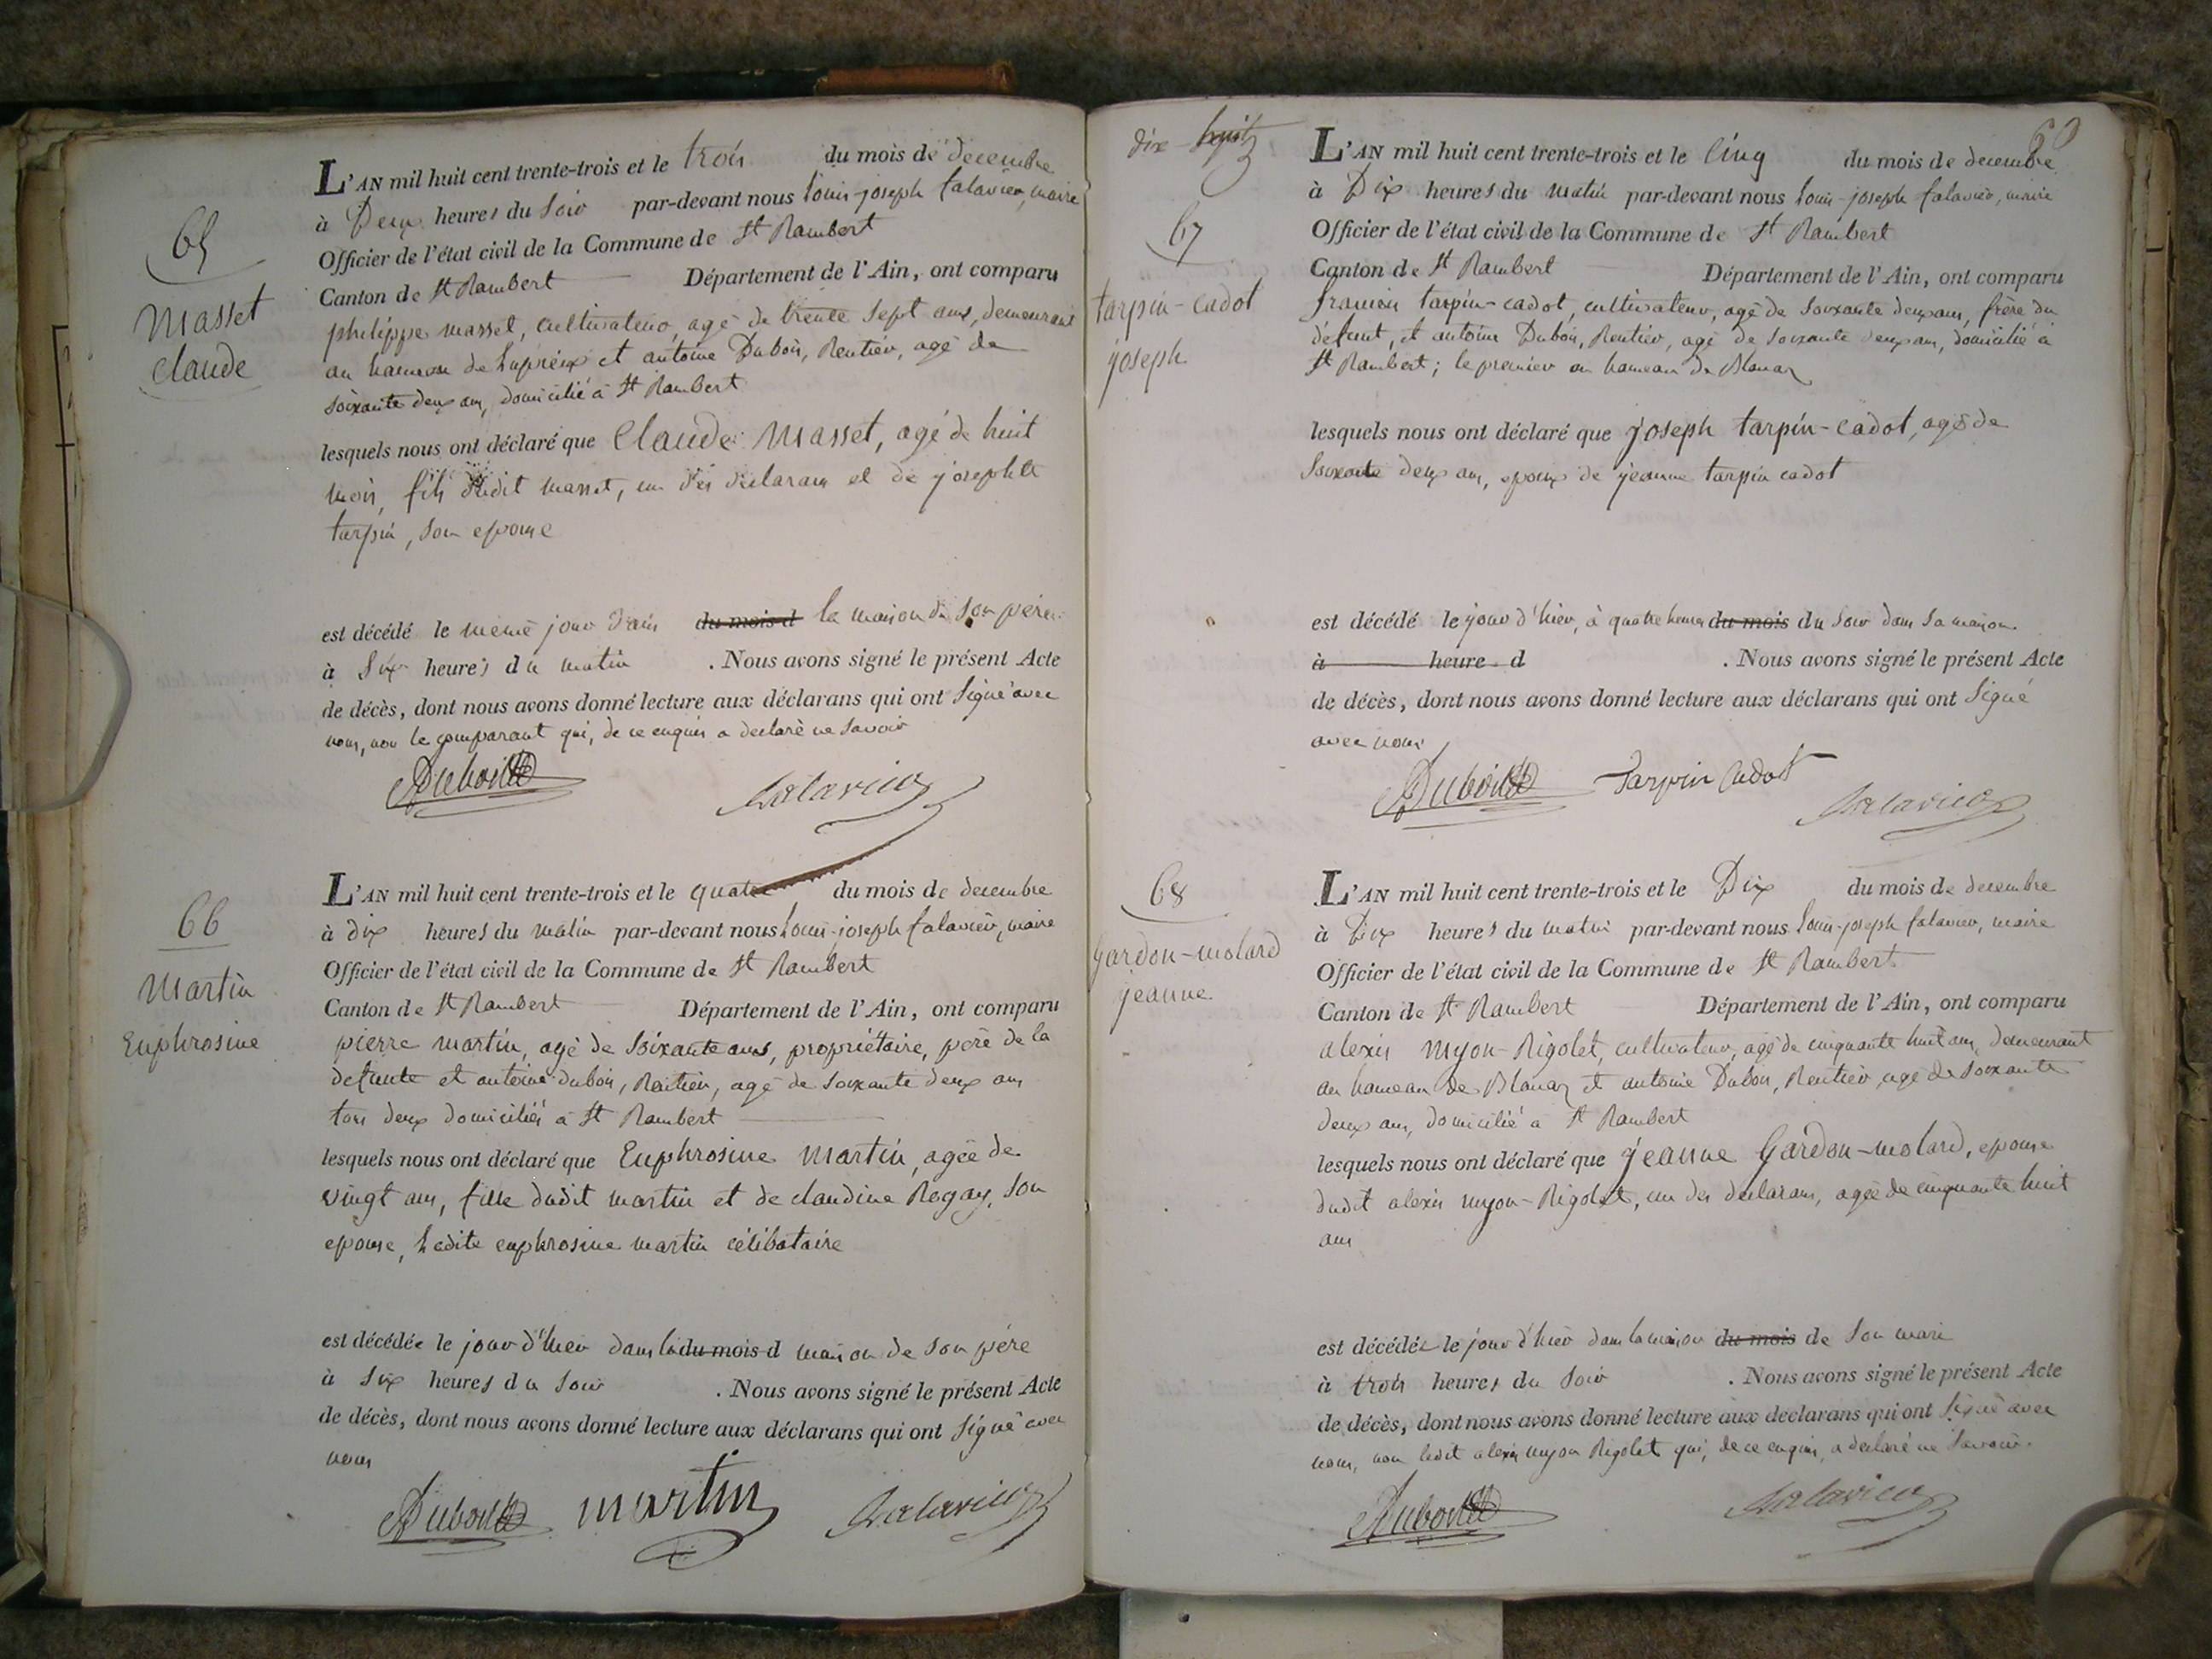 65
Masset
Claude
L'AN mil huit cent trente-trois et le trois du mois de decembre
à Deux heures du soir par-devant nous Louis-joseph falavier, maire
Officier de l'état civil de la Commune de St Rambert
Canton de St Rambert Département de l'Ain, ont comparu
philippe masset, cultivateur agé de trente sept ans, demeurant
au hameau de et antoine Dubois, Rentier, agé de
soixante deux ans, domicilié à St Rambert
lesquels nous ont déclaré que Claude Masset, agé de huit
mois, fils dudit masset, un des déclarans et de josephte
tarpin, son epouse
est décédé le même jour dans du mois d la maison de son père
à Six heures du matin . Nous avons signé le présent Acte
de décès, dont nous avons donné lecture aux déclarans qui ont signé avec
nous, non le comparant qui, de ce enquis a declaré ne savoir
Dubois falavier
66
Martin
Euphrosine
L'AN mil huit cent trente-trois et le quatre du mois de decembre
à dix heures du matin par-devant nous Louis-joseph falavier, maire
Officier de l'état civil de la Commune de St Rambert
Canton de St Rambert Département de l'Ain, ont comparu
pierre martin, agé de soixante ans, propriétaire, père de la
defunte et antoine dubois, Rentier, agé de soixante deux ans
tous deux domiciliés à St Rambert
lesquels nous ont déclaré que Euphrosine Martin, agée de
vingt ans, fille dudit martin et de claudine Rogay, son
epouse, Ladite euphrosine martin célibataire
est décédée le jour d'hier dans la du mois d maison de son père
à six heures du soir . Nous avons signé le présent Acte
de décès, dont nous avons donné lecture aux déclarans qui ont signé avec
nous
Dubois martin falavier
dix huit
60
67
tarpin-cadot
joseph
L'AN mil huit cent trente-trois et le cinq du mois de decembre
à Dix heures du matin par-devant nous Louis-joseph falavier, maire
Officier de l'état civil de la Commune de St Rambert
Canton de St Rambert Département de l'Ain, ont comparu
francois tarpin-cadot, cultivateur, agé de soixante deux ans, frère du
défunt, et antoine Dubois, Rentier, agé de soixante deux ans, domicilié à
St Rambert; le premier au hameau de Blanaz
lesquels nous ont déclaré que joseph tarpin-cadot, agé de
soixante deux ans, epoux de jeanne tarpin cadot
est décédé le jour d'hier, à quatre heures du mois du soir dans sa maison
à heure d . Nous avons signé le présent Acte
de décès, dont nous avons donné lecture aux déclarans qui ont signé
avec nous
Dubois Tarpin Cadot falavier
68
gardon-molard
jeanne
L'AN mil huit cent trente-trois et le Dix du mois de decembre
à Dix heures du matin par-devant nous Louis-joseph falavier, maire
Officier de l'état civil de la Commune de St Rambert
Canton de St Rambert Département de l'Ain, ont comparu
alexis myon-Rigolet, cultivateur, agé de cinquante huit ans, demeurant
au hameau de Blanaz et antoine Dubois, Rentier agé de soixante
deux ans, domicilié à St Rambert
lesquels nous ont déclaré que jeanne Gardon-molard, epouse
dudit alexis myon-Rigolet, un des declarans, agée de cinquante huit
ans
est décédée le jour d'hier dans la maison du mois de son mari
à trois heures du soir . Nous avons signé le présent Acte
de décès, dont nous avons donné lecture aux declarans qui ont signé avec
nous, non ledit alexis myon Rigolet qui, de ce enquis, a declaré ne savoir.
Dubois falavier